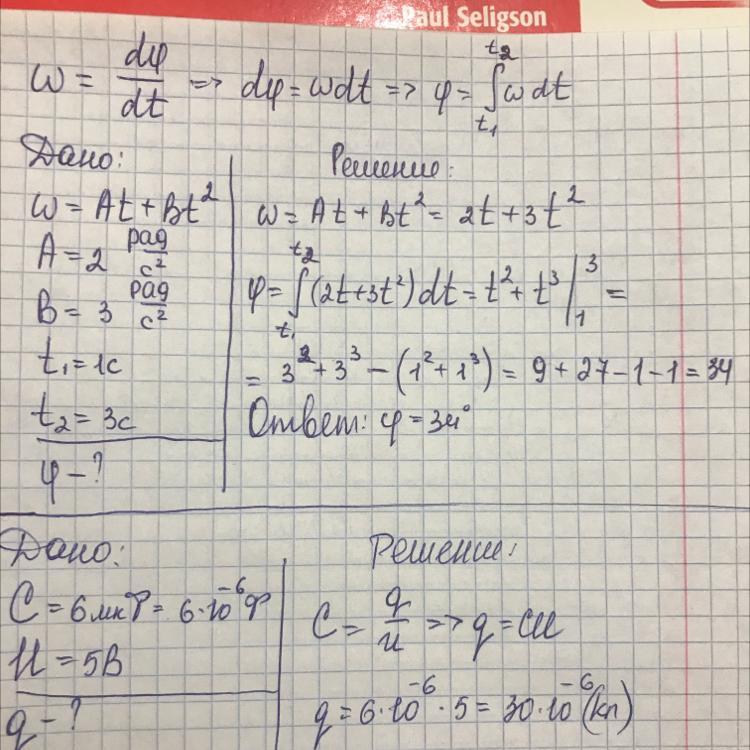 Paul Seligson
ω = dφ/dt => dφ = ωdt => φ = ∫_{t₁}^{t₂} ω dt
Дано:
ω = At + Bt²
A = 2 рад/с²
B = 3 рад/с²
t₁ = 1с
t₂ = 3с
φ - ?
Решение:
ω = At + Bt² = 2t + 3t²
φ = ∫_{t₁}^{t₂} (2t + 3t²) dt = t² + t³ |₁³ =
= 3² + 3³ - (1² + 1³) = 9 + 27 - 1 - 1 = 34
Ответ: φ = 34°
Дано:
C = 6 мкФ = 6·10⁻⁶ Ф
U = 5В
q - ?
Решение:
C = q/u => q = CU
q = 6·10⁻⁶ · 5 = 30·10⁻⁶ (Кл)